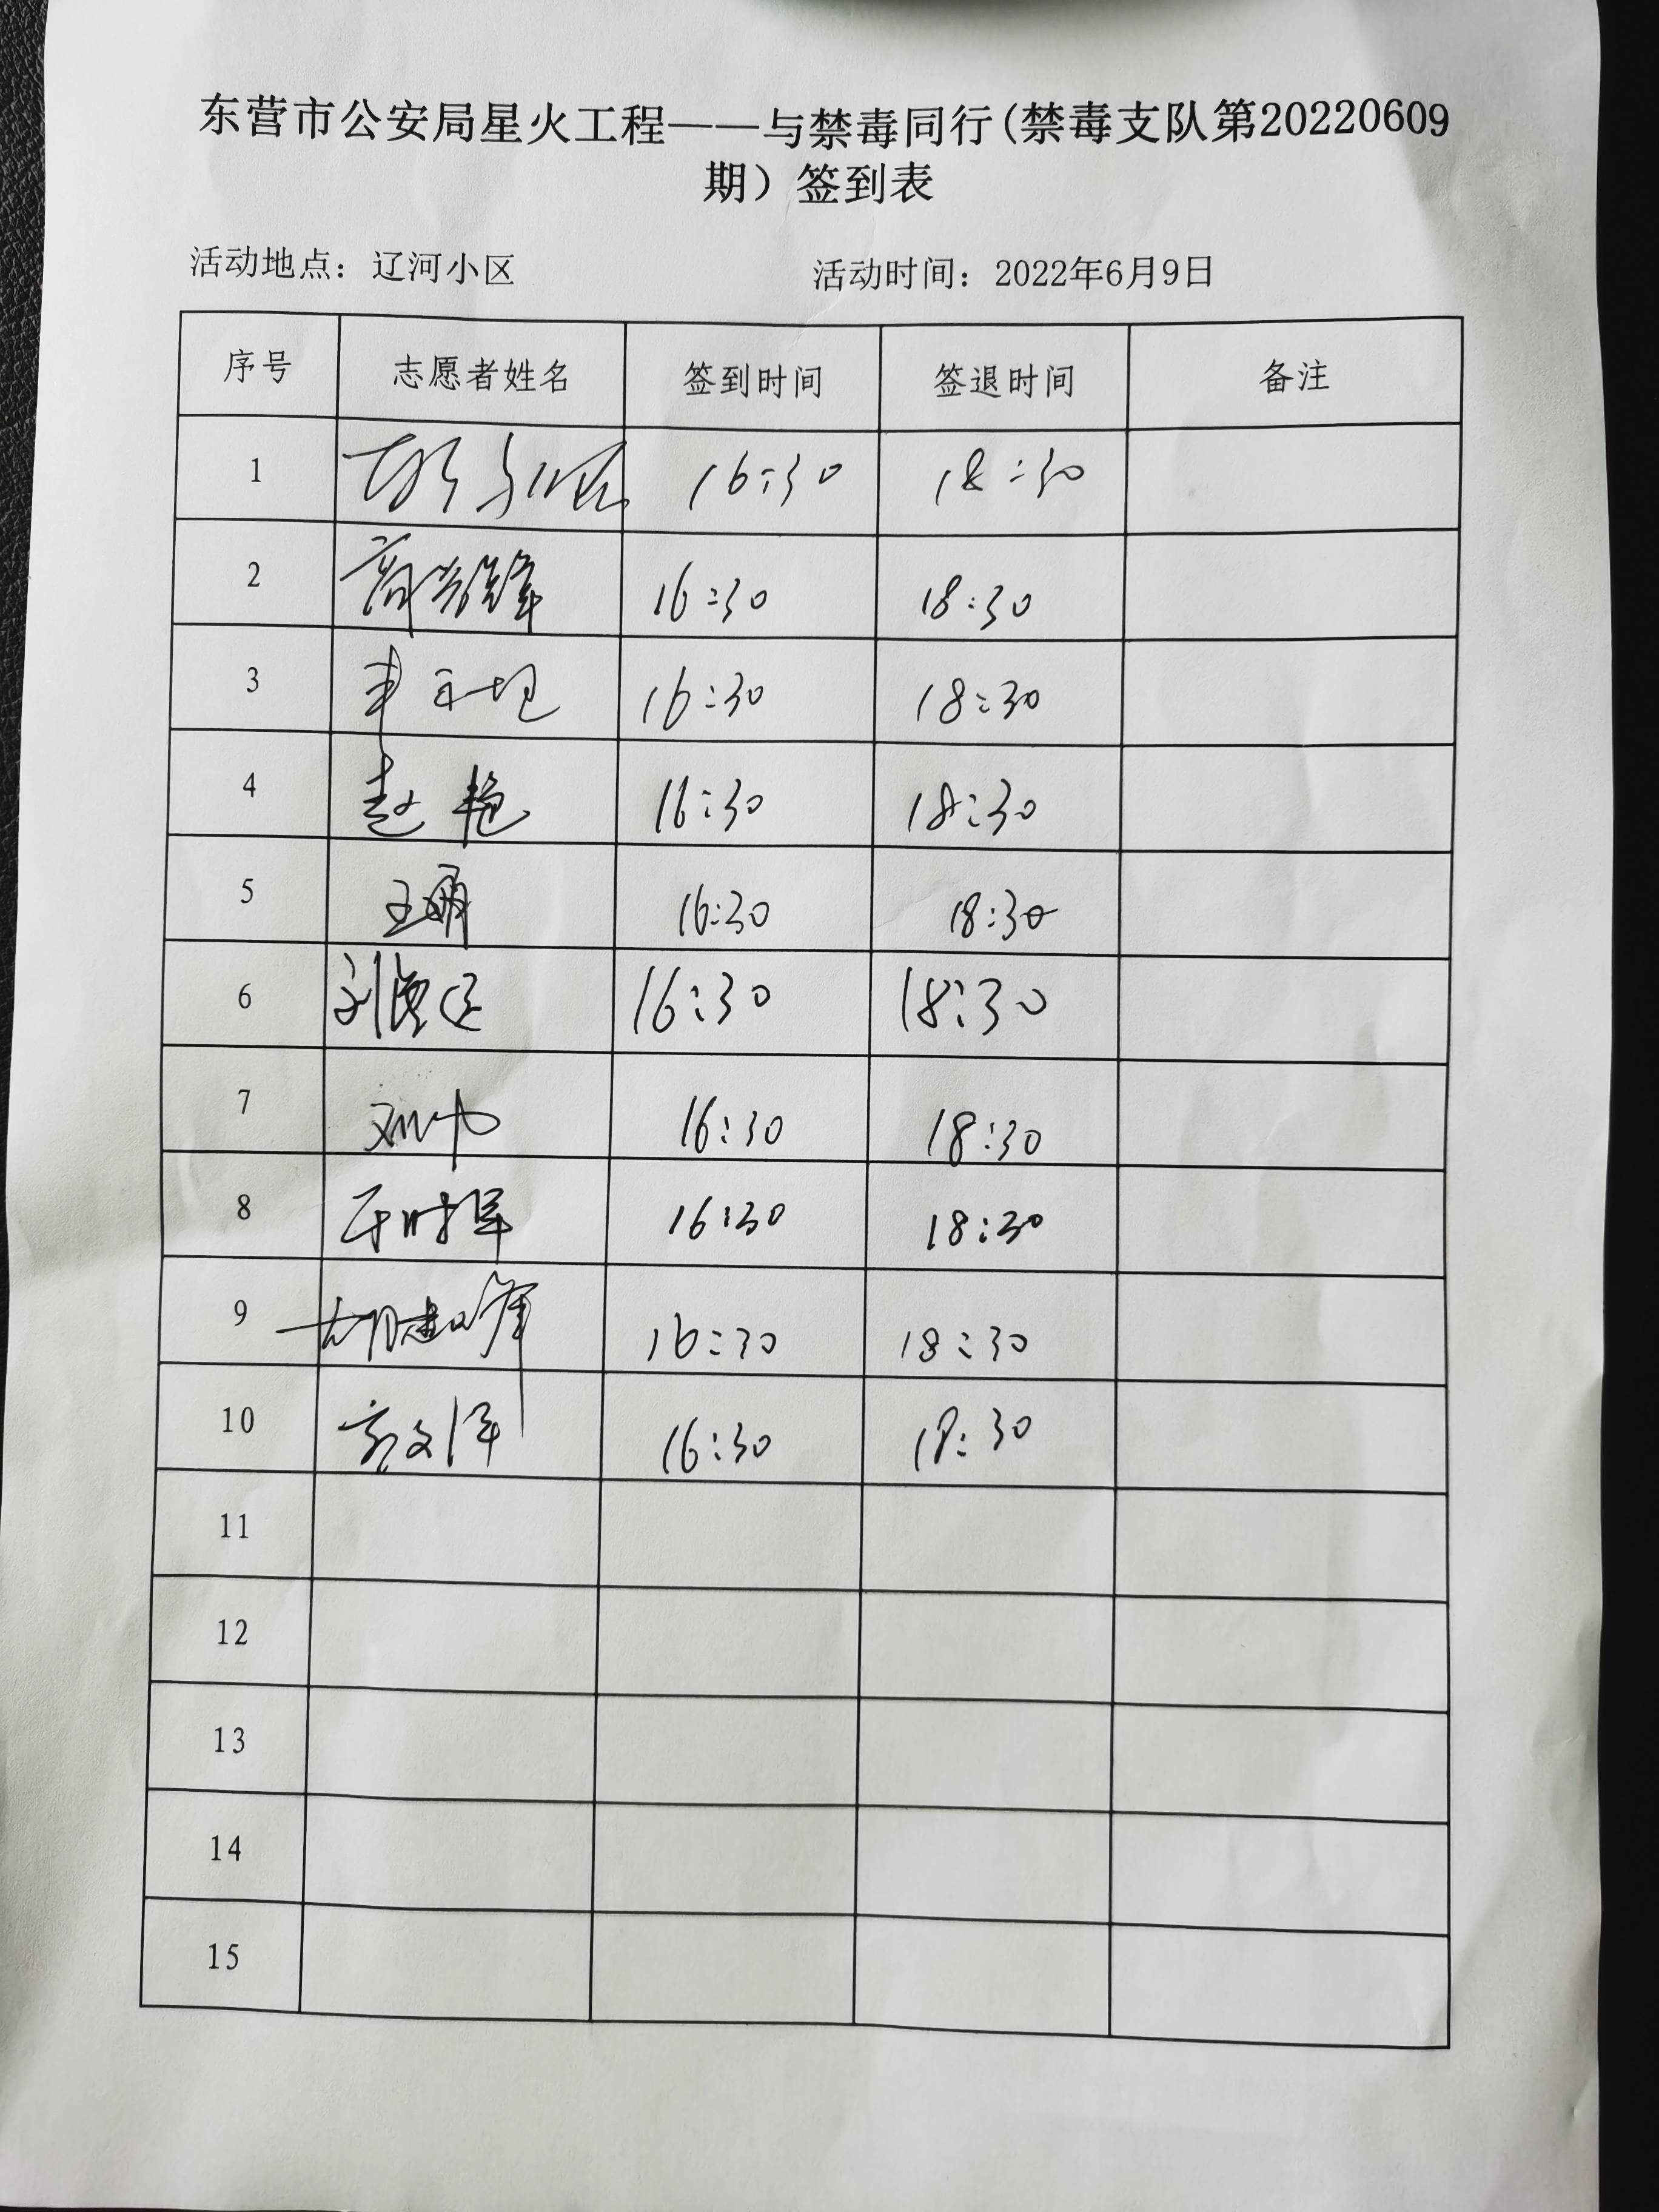 东营市公安局星火工程——与禁毒同行(禁毒支队第20220609
期）签到表
活动地点：辽河小区 活动时间：2022年6月9日
序号 志愿者姓名 签到时间 签退时间 备注
1 16:30 18:30
2 16:30 18:30
3 16:30 18:30
4 赵艳 16:30 18:30
5 16:30 18:30
6 16:30 18:30
7 16:30 18:30
8 16:30 18:30
9 胡建峰 16:30 18:30
10 16:30 18:30
11
12
13
14
15